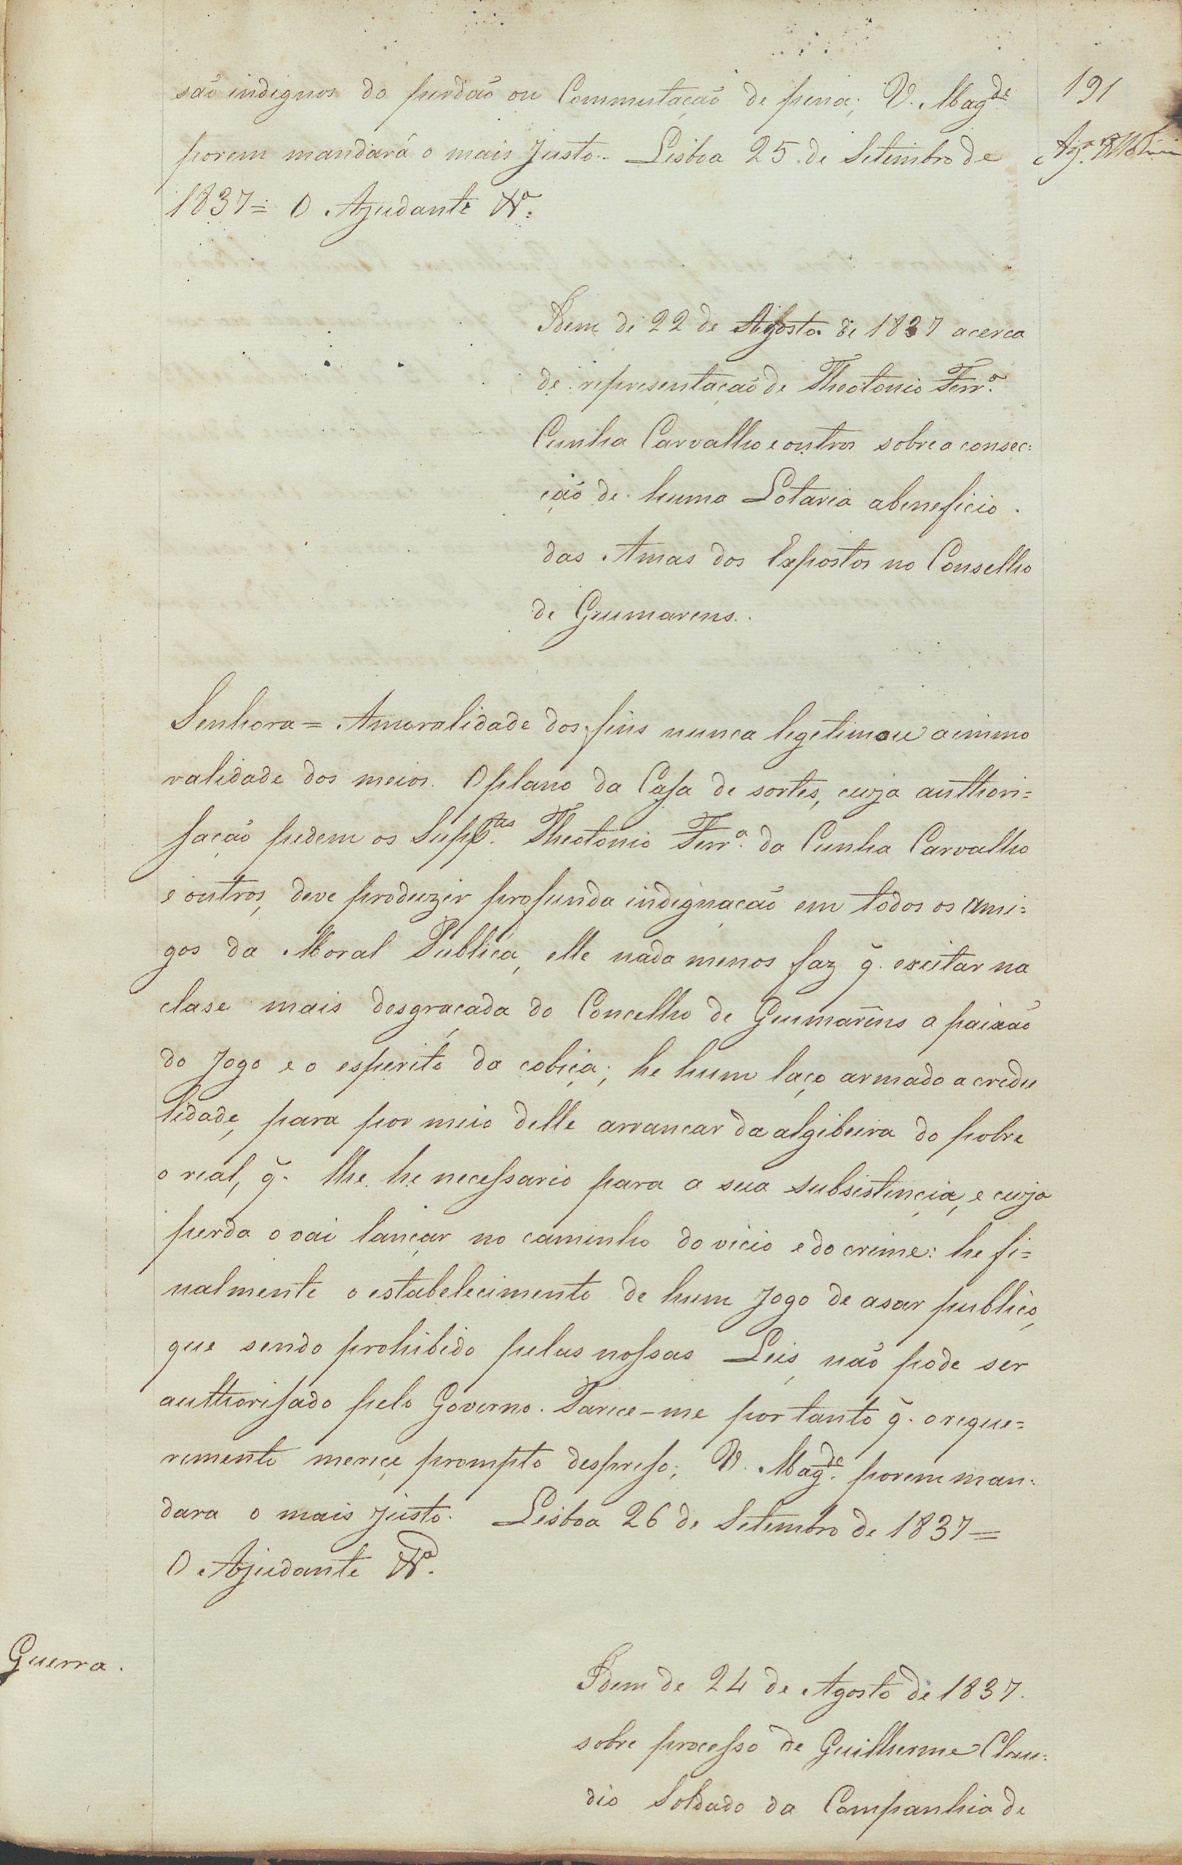 191
são indignos do perdão ou Commutação de pena; V. Mag.de
porem mandará o mais justo. Lisboa 25 de Setembro de
1837 = O Ajudante
Idem de 22 de Agosto de 1837 acerca
de representação de Theotonio Ferr.a
Cunha Carvalho e outros sobre a consec:
ção de huma Lotaria a beneficio
das Amas dos Expostos no Conselho
de Guimarens.
Senhora = A moralidade dos fins nunca legetimou a immo
ralidade dos meios. O plano da Casa de sortes, cuja authori=
sação pedem os Supp.tes Theotonio Ferr.a da Cunha Carvalho
e outros, deve produzir profunda indignação em todos os ami=
gos da Moral Publica, elle nada menos faz q̃. excitar na
clase mais desgraçada do Concelho de Guimarẽns a paixão
do Jogo e o esperito da cobiça; he hum laço armado a credu
lidade, para por meio delle arrancar da algibeira do pobre
o real, q̃. lhe he necessario para a sua subsistencia, e cuja
perda o vai lançar no caminho do vicio e do crime: he fi=
nalmente o estabelecimento de hum Jogo de asar publico,
que sendo prohibido pelas nossas Leis, não pode ser
authorisado pelo Governo. Parece-me por tanto q̃. o reque=
rimento merece prompto despreso; V. Mag.de porem man:
dara o mais justo. Lisboa 26 de Setembro de 1837 =
O Ajudante
Guerra.
Idem de 24 de Agosto de 1837.
sobre processo de Guilherme Clau:
dio Soldado da Companhia de